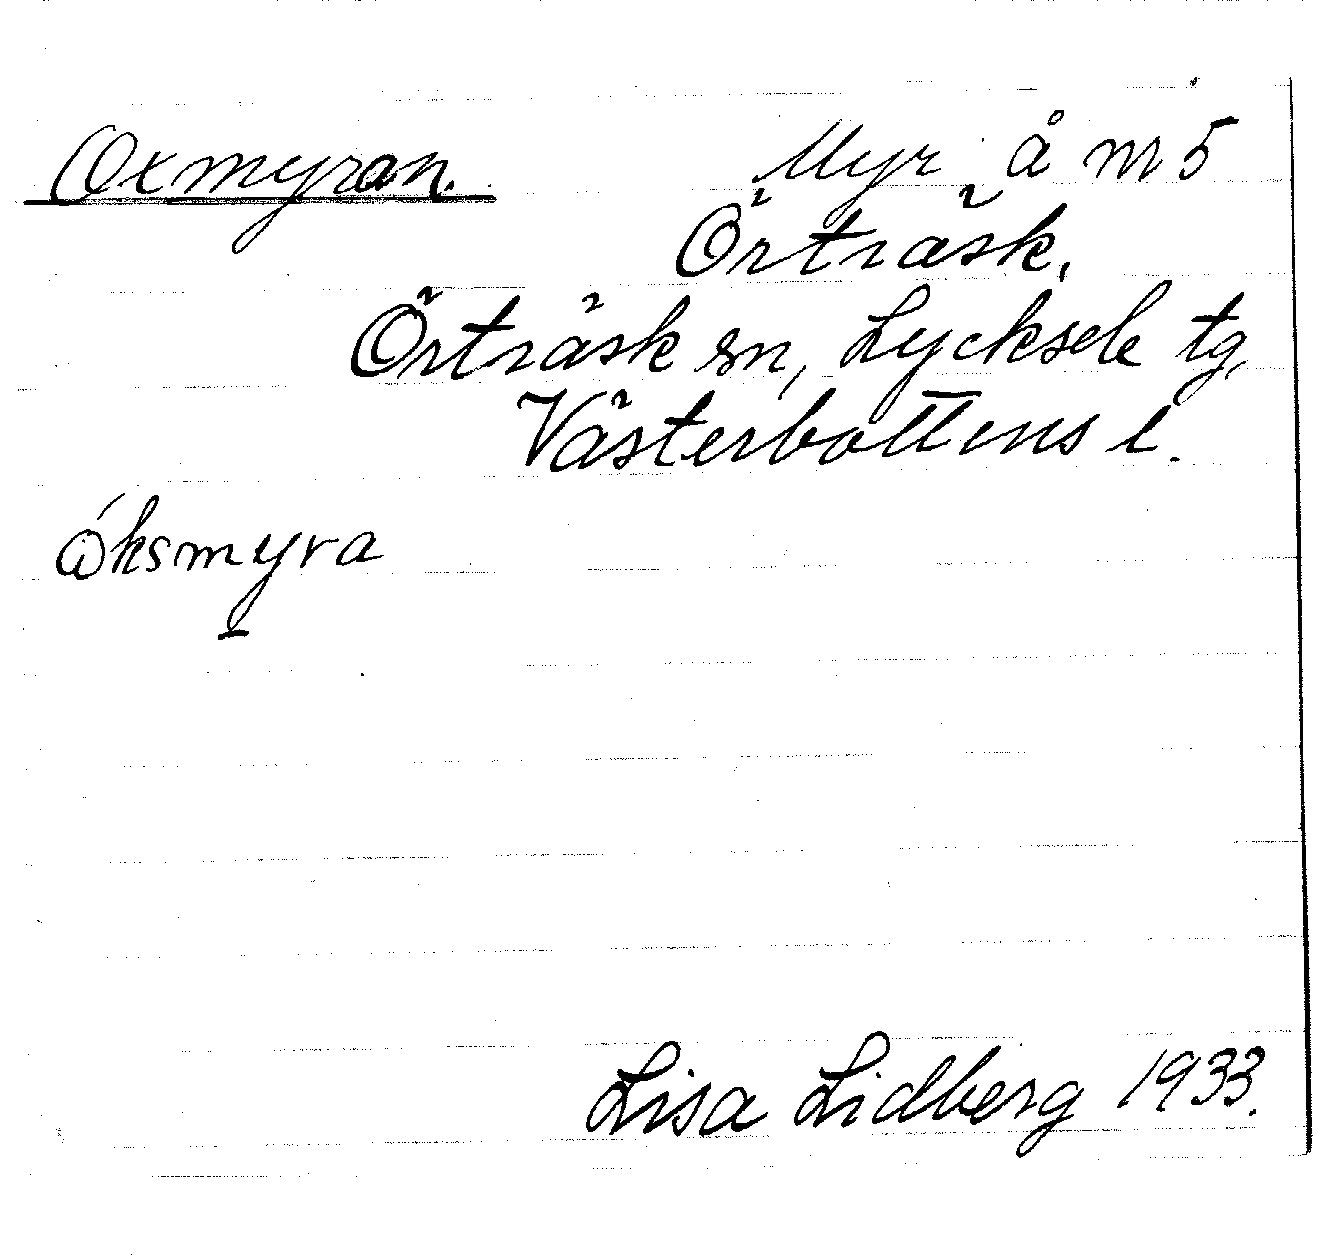 Oxmyran. Myr å nr 5
Örträsk,
Örträsk sn, Lycksele tg,
Västerbottens l.
óksmyra
Lisa Lidberg 1933.